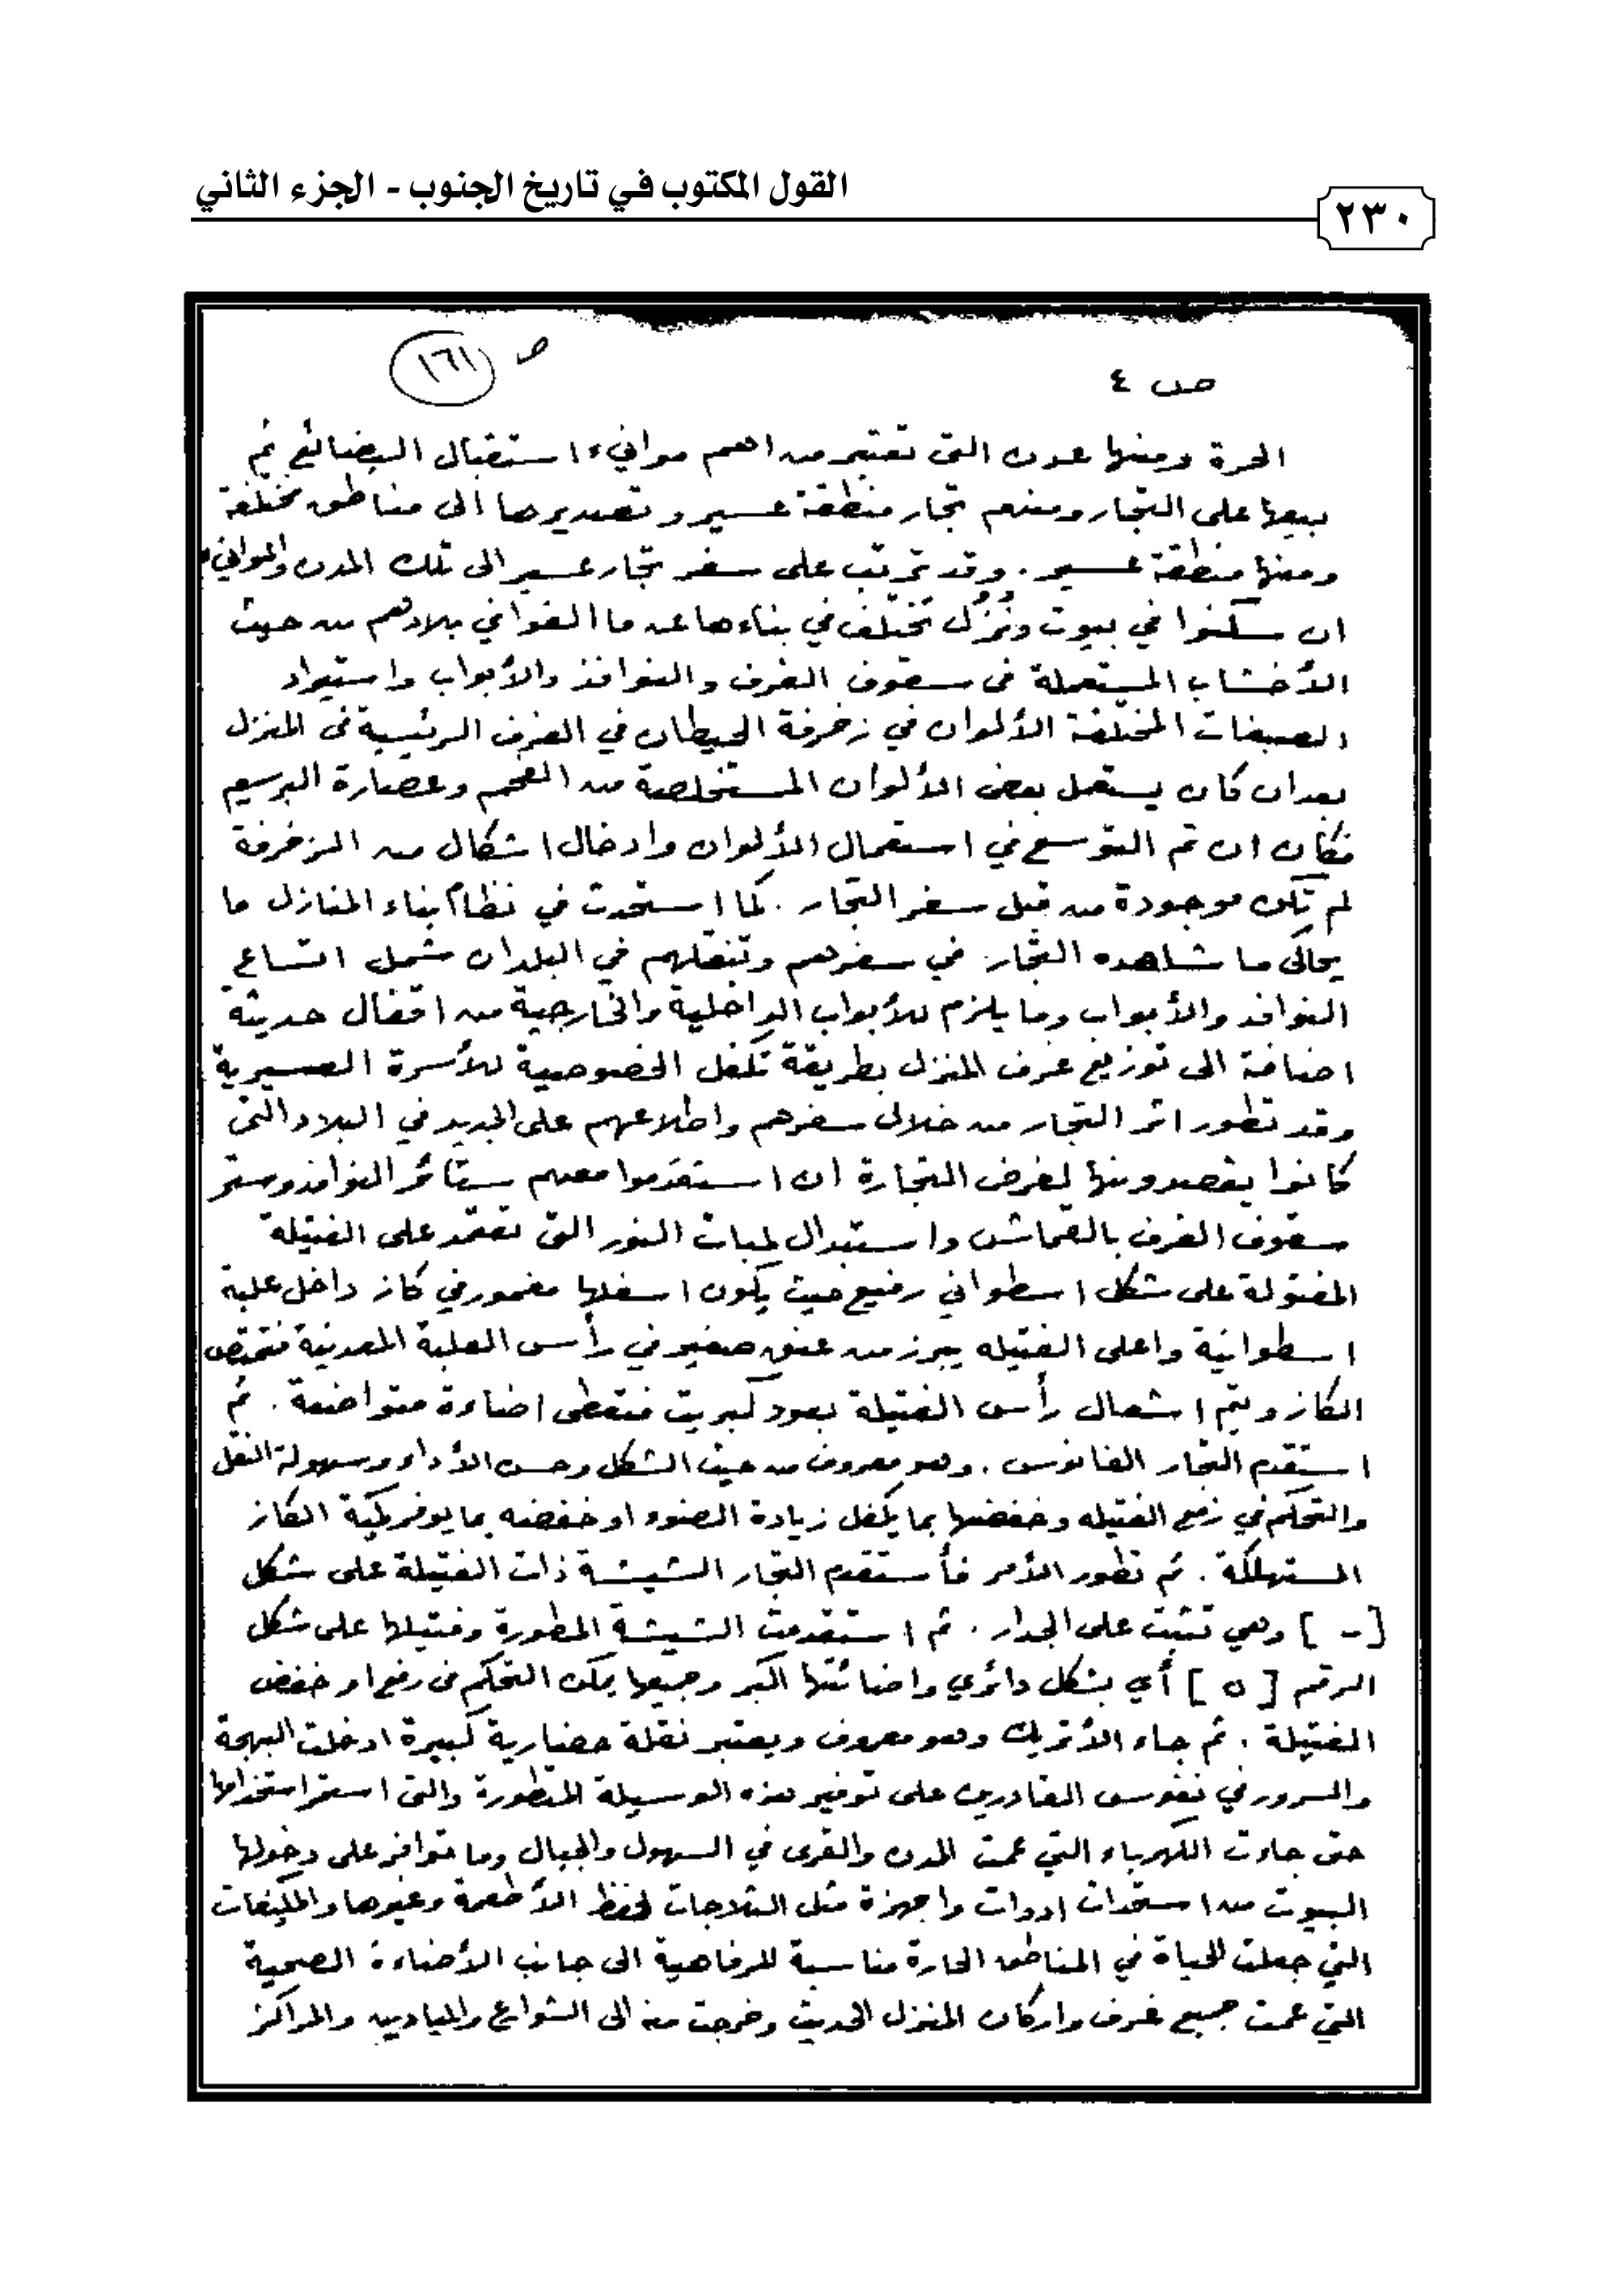 القول المكتوب في تاريخ الجنوب - الجزء الثاني
٢٣٠
ص ١٦١
ص ٤
الحرة ومنها عدن التى تعتبر من اهم موانيء استقبال البضائع ثم
بيعها على التجار ومنهم تجار منطقة عسير وتصديرها الى مناطق مختلفة
ومنها منطقة عسير . وقد ترتب على سفر تجار عسير الى تلك المدن والموانيء
ان سكنوا في بيوت ونُزُل تختلف في بناءها عن ما الفوا في بلادهم من حيث
الأخشاب المستعملة فى سقوف الغرف والنوافذ والأبواب واستيراد
الصبغات المختلفة الألوان في زخرفة الحيطان في الغرف الرئيسية فى المنزل
بعد ان كان يستعمل بعض الألوان المستخلصة من الفحم وعصارة البرسيم
فكان ان تم التوسع في استعمال الألوان وادخال اشكال من الزخرفة
لم تكن موجودة من قبل سفر التجار . كما استحدث في نظام بناء المنازل ما
يحاكى ما شاهده التجار في سفرهم وتنقلهم في البلدان مثل اتساع
النوافد والأبواب وما يلزم للأبواب الداخلية والخارجية من اقفال حديثة
اضافة الى توزيع غرف المنزل بطريقة تكفل الخصوصية للأسرة العسيرية
وقد تطور اثر التجار من خلال سفرهم واطلاعهم على الجديد في البلاد التى
كانوا يقصدونها لغرض التجارة ان استقدموا معهم ستائر النوافذ وستر
سقوف الغرف بالقماش واستبدال لمبات النور التى تعتمد على الفتيلة
المفتولة على شكل اسطواني رفيع حيث يكون اسفلها مغمور في كاز داخل علبة
اسطوانية واعلى الفتيله يبرز من عنق صغير في رأس العلبة المعدنية فتمتص
الكاز ويتم اشعال رأس الفتيلة بعود كبريت فتعطى اضاءة متواضعة . ثم
استقدم التجار الفانوس . وهو معروف من حيث الشكل وحسن الأداء وسهولة النقل
والتحكم في رفع الفتيله وخفضها بما يكفل زيادة الضوء او خفضه بما يوفر كمية الكاز
المستهلكة . ثم تطور الأمر فأستقدم التجار الشيشة ذات الفتيلة على شكل
[ - ] وهي تثبت على الجدار . ثم استقدمت الشيشة المطورة وفتيلها على شكل
الرقم [ ٥ ] أي بشكل دائري واضائتها اكبر وجميعها يمكن التحكم فى رفع او خفض
الفتيلة . ثم جاء الأتريك وهو معروف ويعتبر نقلة حضارية كبيرة ادخلت البهجة
والسرور في نفوس القادرين على توفير هذه الوسيلة المتطورة والتى استمر استخدامها
حتى جاءت الكهرباء التي عمت المدن والقرى في السهول والجبال وما توافر على دخولها
البيوت من استخدامات ادوات واجهزة مثل الثلاجات لحفظ الأطعمة وغيرها والمكيفات
التي جعلت الحياة في المناطق الحارة مناسبة للرفاهية الى جانب الأضاءة الصحية
التي عمت جميع غرف واركان المنزل الحديث وخرجت منه الى الشوارع والميادين والمراكز